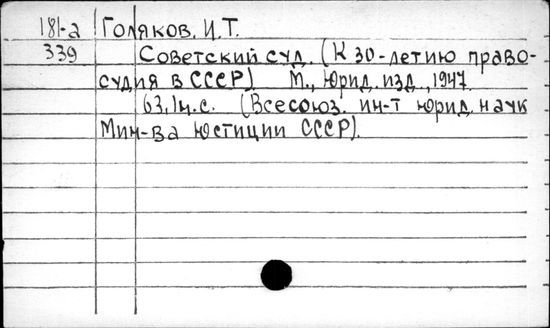 181-а Голяков, И.Т.
339 Советский суд. (К 30-летию право-
судия в СССР) М., Юрид. изд., 1947.
63,1н.с. (Всесоюз. ин-т юрид. наук
Мин-ва юстиции СССР).